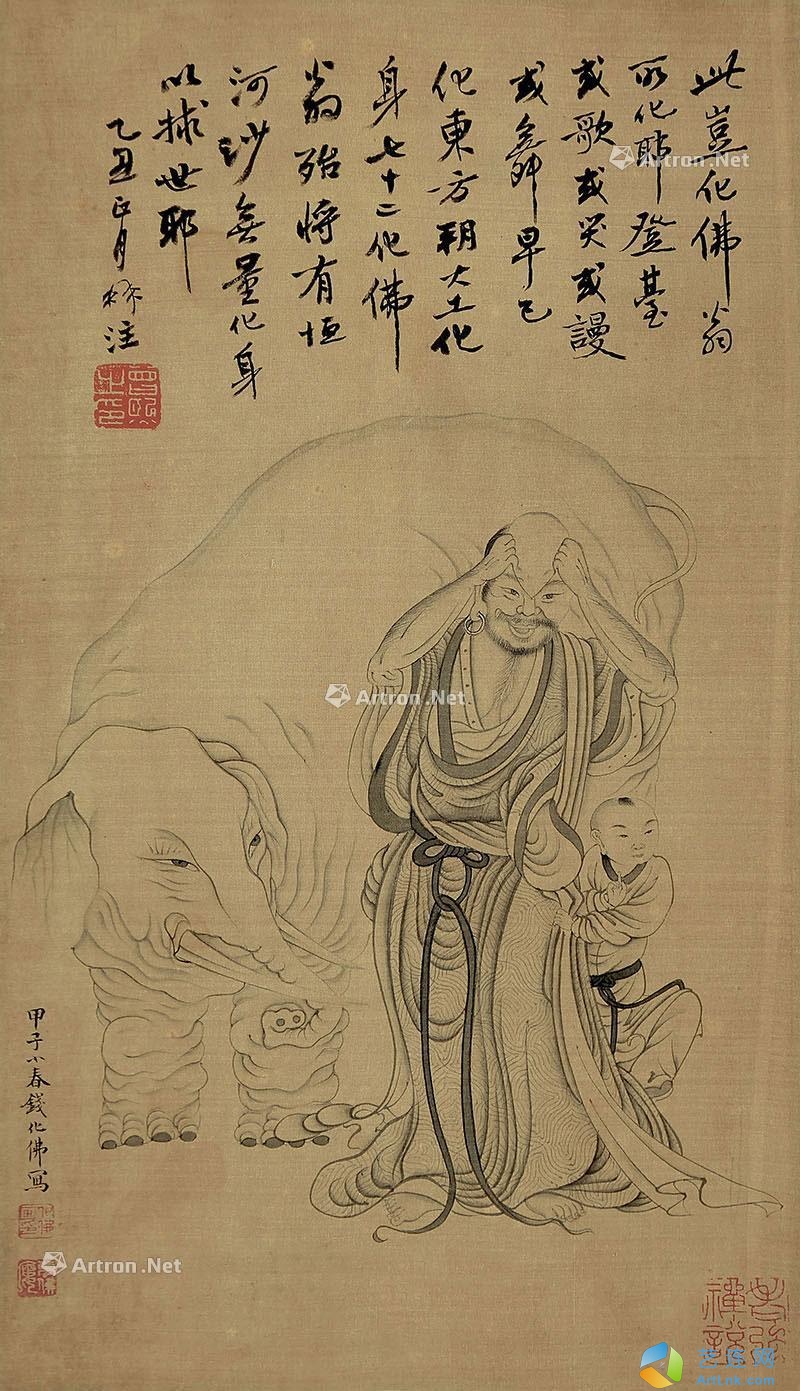 此豈化佛翁
所化耶登臺
或歌或哭或謾
或舞早已
化東方朔大士化
身七十二化佛
翁殆將有恒
河沙無量化身
以捄世耶
乙丑正月
注
曾熙之印
甲子小春錢化佛寫
Artron.Net
Artron.Net
Artron.Net